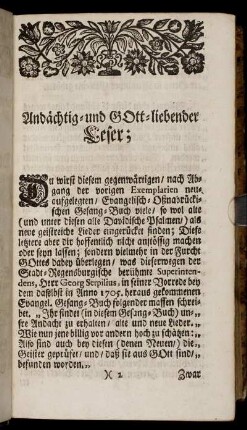 Andächtig- und GOtt-liebender
Leser;
DU wirst diesem gegenwärtigen / nach Ab-
gang der vorigen Exemplarien neu-
aufgelegten / Evangelisch-Oßnabrücki-
schen Gesang-Buch viele / so wol alte
( und unter diesen alle Davidische Psalmen ) als
neue geistreiche Lieder eingerückt finden; Diese
letztere aber dir hoffentlich nicht anstössig machen
oder seyn lassen; sondern vielmehr in der Furcht
GOttes dabey überlegen / was diejenigen der
Stadt-Regenspurgische berühmte Superinten-
dens, Herr Georg Serpilius, in seiner Vorrede bey
dem daselbst in Anno 1705. heraus gekommenen
Evangel. Gesang-Buch folgender massen schrei-
bet. „ Ihr findet (in diesem Gesang-Buch) un-„
sre Andacht zu erhalten / alte und neue Lieder. „
Wie nun jene billig vor andern hoch zu schätzen: „
Also sind auch bey diesen (denen Neuen) die „
Geister geprüfet / und / daß sie aus GOtt sind / „
befunden worden. „
)( 2 Zwar